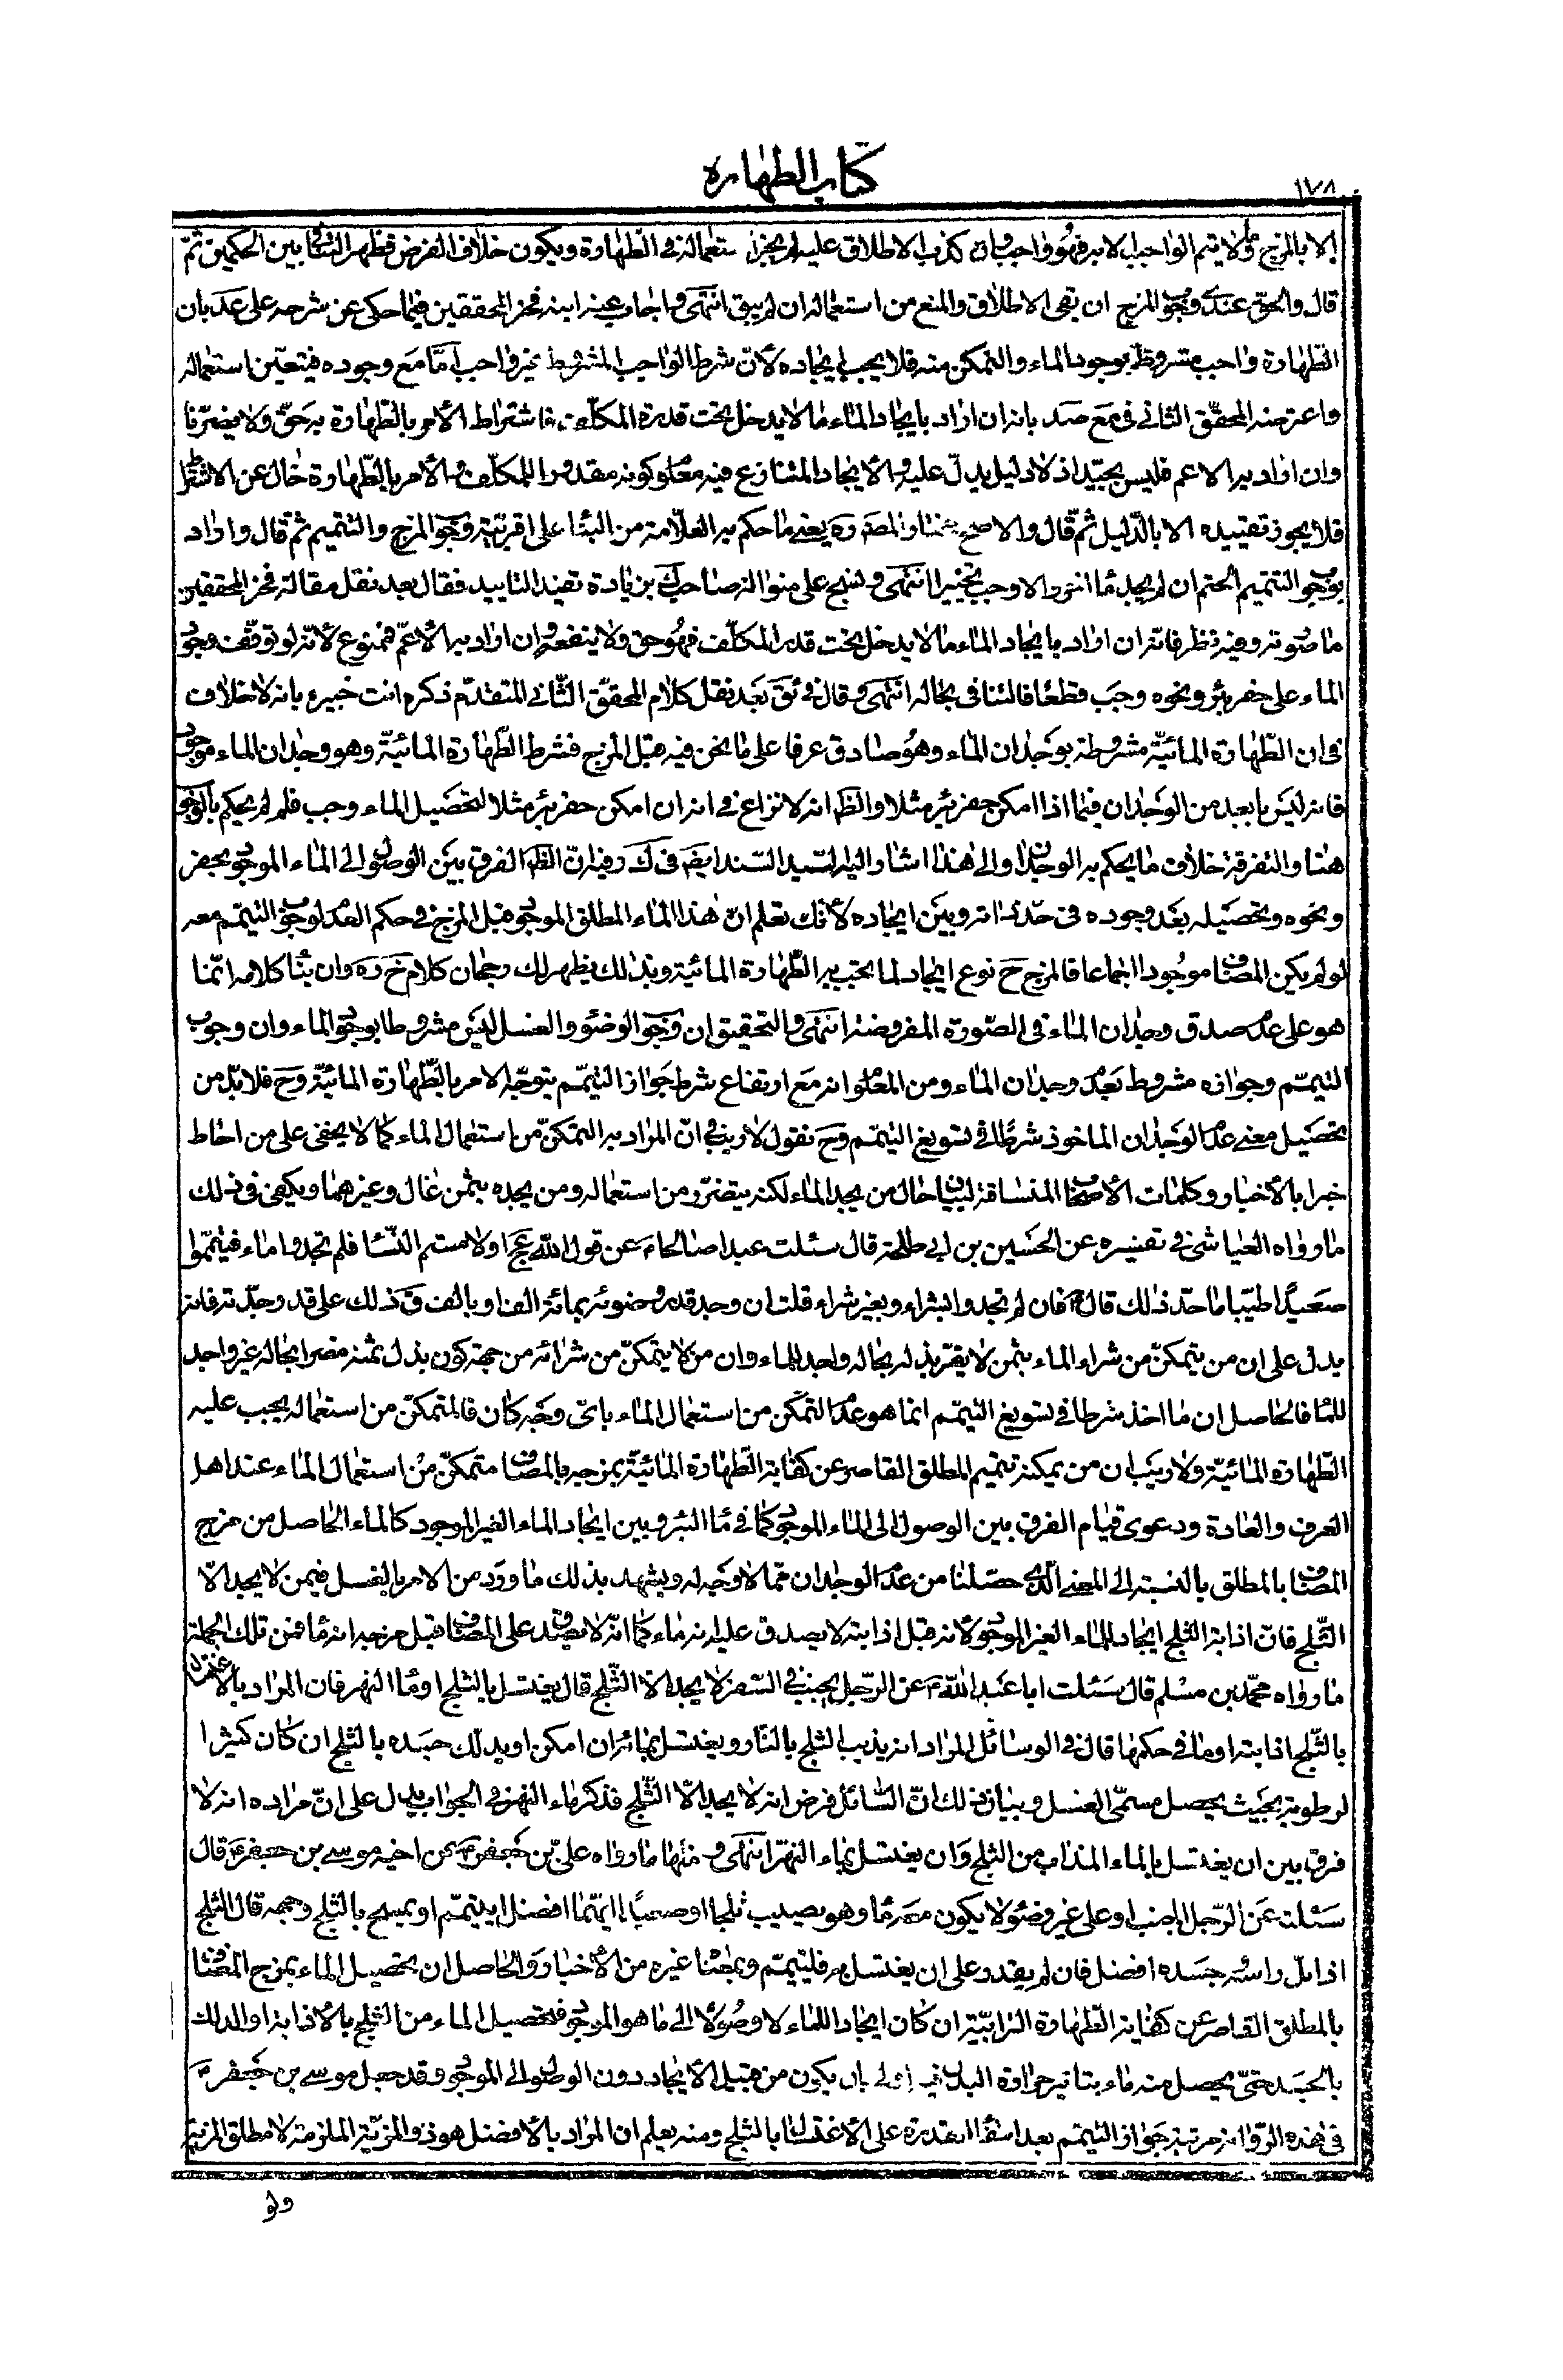 ١٧٨
كتاب الطهارة
الا بالمزج وما لا يتم الواجب الا به فهو واجب وان كذب الاطلاق عليه لم يجز استعماله في الطهارة ويكون خلاف الفرض فظهر التنافي بين الحكمين ثم
قال والحق عندي وجوب المزج ان بقي الاطلاق والمنع من استعماله ان لم يبق انتهى واجاب عنه ابنه فخر المحققين فيما حكي عن شرحه على عد بان
الطهارة واجب مشروط بوجود الماء والتمكن منه فلا يجب ايجاده لان شرط الواجب المشروط غير واجب اما مع وجوده فيتعين استعماله
واعترضه المحقق الثاني في مع صد بانه ان اراد بايجاد الماء ما لا يدخل تحت قدرة المكلف فاشتراط الامر بالطهارة به حق ولا يضرنا
وان اراد به الاعم فليس بجيد اذ لا دليل يدل عليه والايجاد المتنازع فيه معلوم كونه مقدورا للمكلف والامر بالطهارة خال عن الاشتراط
فلا يجوز تقييده الا بالدليل ثم قال والاصح المصنف ره يعني ما حكم به العلامة من البناء على اقربية وجوب المزج والتتميم ثم قال واراد
بوجوب التتميم الحتم ان لم يجد ماء اخر والا وجب تخييرا انتهى ونسج على منواله صاحب ك بزيادة تفيد التاييد فقال بعد نقل مقالة فخر المحققين
ما صورته وفيه نظر فانه ان اراد بايجاد الماء ما لا يدخل تحت قدرة المكلف فهو حق ولا ينفعه وان اراد به الاعم فممنوع لانه لو توقف وجود
الماء على حفر بئر ونحوه وجب قطعا فالتنافي بحاله انتهى وقال في ئق بعد نقل كلام المحقق الثاني المتقدم ذكره انت خبير بانه لا خلاف
في ان الطهارة المائية مشروطة بوجدان الماء وهو صادق عرفا على ما نحن فيه قبل المزج فشرط الطهارة المائية وهو وجدان الماء موجود
فانه ليس بابعد من الوجدان فيما اذا امكن حفر بئر مثلا والظ انه لا نزاع في انه ان امكن حفر بئر مثلا لتحصيل الماء وجب فلم لم يحكم بالوجوب
هنا والتفرقة خلاف ما يحكم به الوجدان والى هذا اشار اليه السيد السند ايضا في ك وفيه ان الظ الفرق بين الوصول الى الماء الموجود بحفر
ونحوه وتحصيله بعد وجوده في حد ذاته وبين ايجاده لانك تعلم ان هذا الماء المطلق الموجود قبل المزج في حكم العدم لوجوب التيمم معه
لو لم يكن المضاف موجودا اجماعا فالمزج ح نوع ايجاد لما يجب به الطهارة المائية وبذلك يظهر لك رجحان كلام خ ره وان بناء كلامه انما
هو على عدم صدق وجدان الماء في الصورة المفروضة انتهى والتحقيق ان وجوب الوضوء والغسل ليس مشروطا بوجود الماء وان وجوب
التيمم وجوازه مشروط بعدم وجدان الماء ومن المعلوم انه مع ارتفاع شرط جواز التيمم يتوجه الامر بالطهارة المائية وح فلا بد من
تحصيل معنى عدم الوجدان الماخوذ شرطا في تسويغ التيمم وح نقول لا ريب في ان المراد به التمكن من استعمال الماء كما لا يخفى على من احاط
خبرا بالاخبار وكلمات الاصحاب المنساقة لبيان حال من يجد الماء لكنه يتضرر من استعماله ومن يجده بثمن غال وغيرهما ويكفي في ذلك
ما رواه العياشي في تفسيره عن الحسين بن ابي طلحة قال سئلت عبدا صالحا ع عن قول الله عج او لامستم النساء فلم تجدوا ماء فتيمموا
صعيدا طيبا ما حد ذلك قال فان لم تجدوا بشراء وبغير شراء قلت ان وجد قدر وضوئه بمائة الف او بالف وكم ذلك على قدر وجدته فانه
يدل على ان من يتمكن من شراء الماء بثمن لا يضر بذله بحاله واجد للماء وان من لا يتمكن من شرائه من جهة كون بذل ثمنه مضرا بحاله غير واجد
للماء فالحاصل ان ما اخذ شرطا في تسويغ التيمم انما هو عدم التمكن من استعمال الماء باي وجه كان فالمتمكن من استعماله يجب عليه
الطهارة المائية ولا ريب ان من يمكنه تتميم المطلق القاصر عن كفاية الطهارة المائية بمزجه بالمضاف متمكن من استعمال الماء عند اهل
العرف والعادة ودعوى قيام الفرق بين الوصول الى الماء الموجود كما في ماء البئر وبين ايجاد الماء الغير الموجود كالماء الحاصل من مزج
المضاف بالمطلق بالنسبة الى المعنى الذي حصلنا من عدم الوجدان مما لا وجه له ويشهد بذلك ما ورد من الامر بالغسل فيمن لا يجد الا
الثلج فان اذابة الثلج ايجاد للماء الغير الموجود لانه قبل اذابته لا يصدق عليه انه ماء كما انه لا يصدق على المضاف قبل مزجه انه ماء فمن تلك الجملة
ما رواه محمد بن مسلم قال سئلت ابا عبد الله ع عن الرجل يجنب في السفر لا يجد الا الثلج قال يغتسل بالثلج او ماء النهر فان المراد بالاغتسال
بالثلج اذابته او ما في حكمها قال في الوسائل المراد انه يذيب الثلج بالنار ويغتسل بمائه ان امكن او يدلك جسده بالثلج ان كان كثيرا
لرطوبته بحيث يحصل مسمى الغسل وبيان ذلك ان السائل فرض انه لا يجد الا الثلج فذكر ماء النهر في الجواب يدل على ان مراده انه لا
فرق بين ان يغتسل بالماء المذاب من الثلج وان يغتسل بماء النهر انتهى ومنها ما رواه علي بن جعفر ع عن اخيه موسى بن جعفر ع قال
سئلت عن الرجل الجنب او على غير وضوء لا يكون معه ماء وهو يصيب ثلجا او صعيدا ايهما افضل ايتيمم او يمسح بالثلج وجهه قال الثلج
اذا بل راسه وجسده افضل فان لم يقدر على ان يغتسل به فليتيمم وبمعناها غيره من الاخبار والحاصل ان تحصيل الماء بمزج المضاف
بالمطلق القاصر عن كفاية الطهارة الترابية ان كان ايجادا للماء لا وصولا الى ما هو الموجود فتحصيل الماء من الثلج بالاذابة او الدلك
بالجسد حتى يحصل منه ماء بتاثير حرارة البدن فيه اولى بان يكون من قبيل الايجاد دون الوصول الى الموجود وقد جعل موسى بن جعفر ع
في هذه الرواية مرتبة جواز التيمم بعد انتفاء القدرة على الاغتسال بالثلج ومنه يعلم ان المراد بالافضل هو ذو المزية الملزمة لا مطلق المزية
ولو